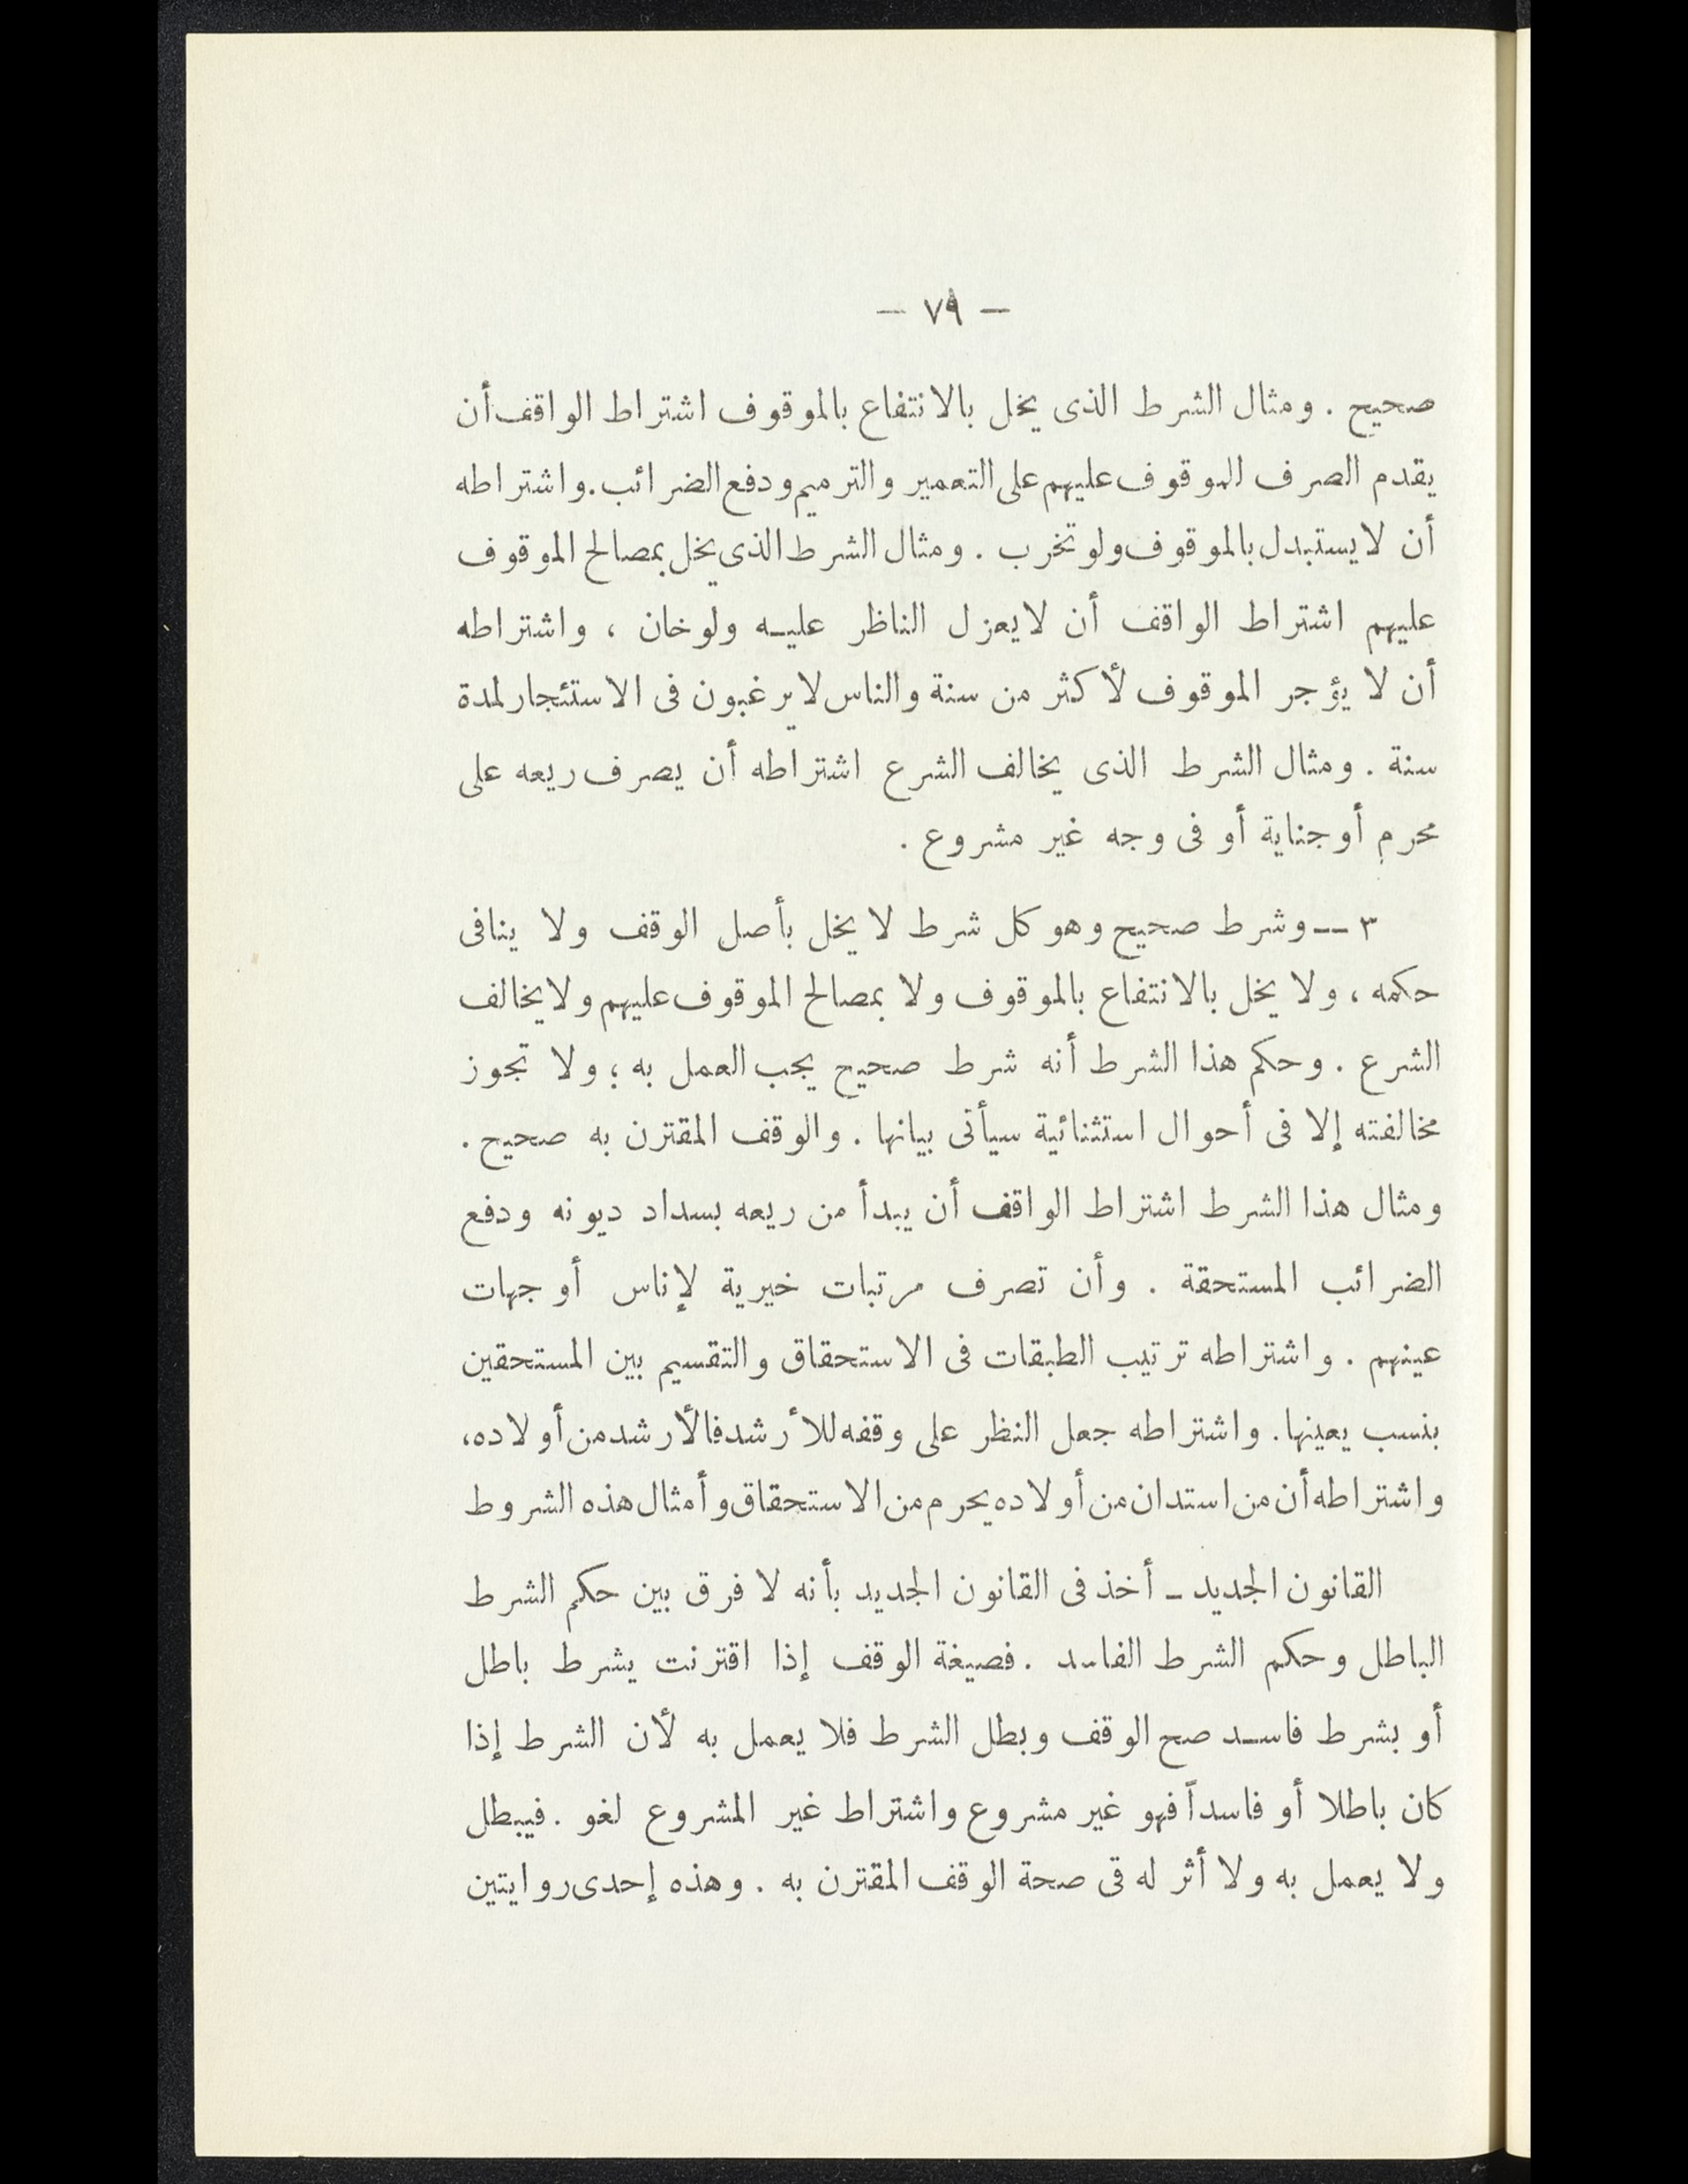 — ٧٩ —
صحيح . ومثال الشرط الذى يخل بالانتفاع بالموقوف اشتراط الواقف أن
يقدم الصرف للموقوف عليهم على التعمير والترميم ودفع الضرائب . واشتراطه
أن لا يستبدل بالموقوف ولو تخرب . ومثال الشرط الذى يخل بمصالح الموقوف
عليهم اشتراط الواقف أن لا يعزل الناظر عليه ولو خان ، واشتراطه
أن لا يؤجر الموقوف لأكثر من سنة والناس لا يرغبون فى الاستئجار لمدة
سنة . ومثال الشرط الذى يخالف الشرع اشتراطه أن يصرف ريعه على
محرم أو جناية أو فى وجه غير مشروع .
٣ — وشرط صحيح وهو كل شرط لا يخل بأصل الوقف ولا ينافى
حكمه ، ولا يخل بالانتفاع بالموقوف ولا بمصالح الموقوف عليهم ولا يخالف
الشرع . وحكم هذا الشرط أنه شرط صحيح يجب العمل به ؛ ولا تجوز
مخالفته إلا فى أحوال استثنائية سيأتى بيانها . والوقف المقترن به صحيح .
ومثال هذا الشرط اشتراط الواقف أن يبدأ من ريعه بسداد ديونه ودفع
الضرائب المستحقة . وأن تصرف مرتبات خيرية لإناس أو جهات
عينهم . واشتراطه ترتيب الطبقات فى الاستحقاق والتقسيم بين المستحقين
بنسب يعينها . واشتراطه جعل النظر على وقفه للأرشد فالأرشد من أولاده ،
واشتراطه أن من استدان من أولاده يحرم من الاستحقاق وأمثال هذه الشروط
القانون الجديد - أخذ فى القانون الجديد بأنه لا فرق بين حكم الشرط
الباطل وحكم الشرط الفاسد . فصيغة الوقف إذا اقترنت يشرط باطل
أو بشرط فاسد صح الوقف وبطل الشرط فلا يعمل به لأن الشرط إذا
كان باطلا أو فاسداً فهو غير مشروع واشتراط غير المشروع لغو . فيبطل
ولا يعمل به ولا أثر له فى صحة الوقف المقترن به . وهذه إحدى روايتين